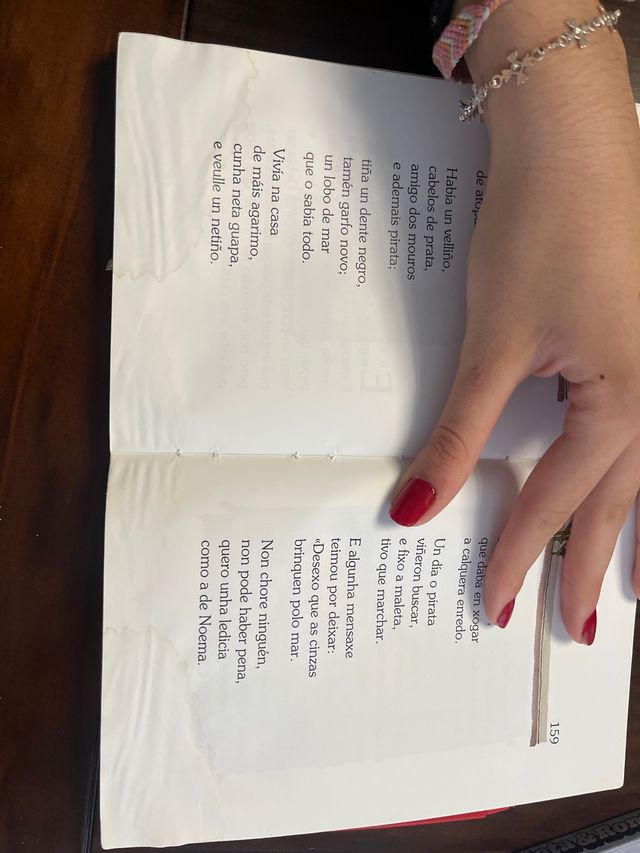 de
Había un velliño,
cabelos de prata,
amigo dos mouros
e ademais pirata;
tiña un dente negro,
tamén garfo novo;
un lobo de mar
que o sabía todo.
Vivía na casa
de máis agarimo,
cunha neta guapa,
e veulle un netiño.
159
que daba en xogar
a calquera enredo.
Un día o pirata
viñeron buscar,
e fixo a maleta,
tivo que marchar.
E algunha mensaxe
teimou por deixar:
«Desexo que as cinzas
brinquen polo mar.
Non chore ninguén,
non pode haber pena,
quero unha ledicia
como a de Noema.